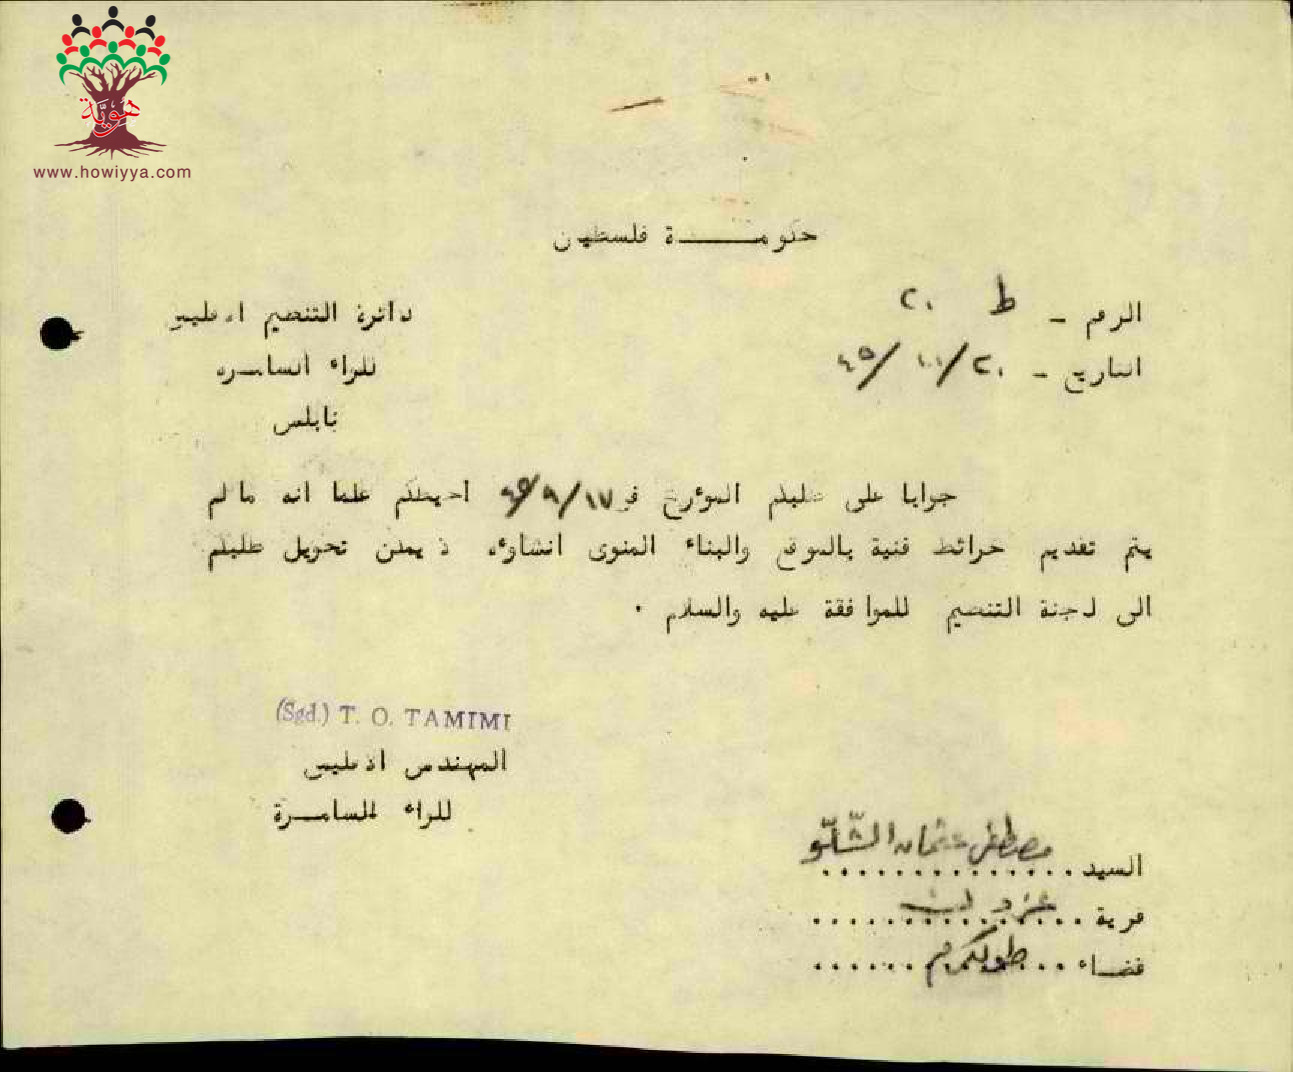 هوية
www.howiyya.com
حكومة فلسطين
الرقم - ط ٢٠
دائرة التنظيم الاقليمي
التاريخ - ٢٠/ /٤٥
للواء السامره
نابلس
جوابا على طلبكم المؤرخ في ١٧/٩/٤٥ احيطكم علما انه ما لم
يتم تقديم خرائط فنية بالموقع والبناء المنوى انشاؤه لا يمكن تحويل طلبكم
الى لجنة التنظيم للموافقة عليه والسلام .
(Sgd.) T. O. TAMIMI
المهندس الاقليمي
للواء السامرة
السيد مصطفى عثمان الشلّو
قرية عزون
قضاء طولكرم